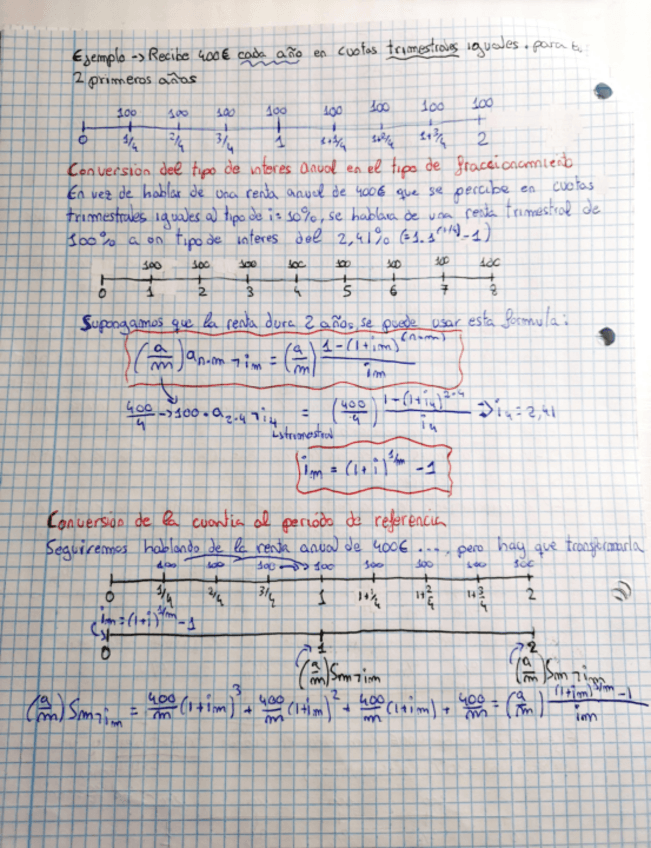 Ejemplo -> Recibe 400€ cada año en cuotas trimestrales iguales. para
2 primeros años
100 100 100 100 100 100 100 100
0 1/4 2/4 3/4 1 1+1/4 1+2/4 1+3/4 2
Conversion del tipo de interes anual en el tipo de fraccionamiento
En vez de hablar de una renta anual de 400€ que se percibe en cuotas
trimestrales iguales al tipo de i=10%, se hablara de una renta trimestral de
100% a on tipo de interes del 2,41% (=1.1^(1/4)-1)
100 100 100 100 100 100 100 100
0 1 2 3 4 5 6 7 8
Supongamos que la renta dura 2 años, se puede usar esta formula:
(a/m) a n·m ¬ im = (a/m) 1-(1+im)^(n·m) / im
400/4 -> 100 · a 2·4 ¬ i4 = (400/4) 1-(1+i4)^2·4 / i4 => i4 = 2,41
↳ trimestral
im = (1+i)^1/m - 1
Conversion de la cuantia al periodo de referencia
Seguiremos hablando de la renta anual de 400€ ..., pero hay que transformarla
100 100 100 -> 100 100 100 100 100
0 1/4 2/4 3/4 1 1+1/4 1+2/4 1+3/4 2
im = (1+i)^1/m - 1
0 1 2
(a/m) Sm¬im (a/m) Sm¬im
(a/m) Sm¬im = 400/m (1+im)^3 + 400/m (1+im)^2 + 400/m (1+im) + 400/m = (a/m) (1+im) - 1 / im